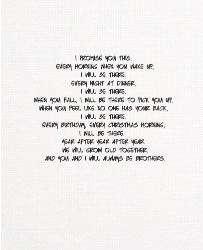 I PROMISE YOU THIS.
EVERY MORNING WHEN YOU WAKE UP,
I WILL BE THERE.
EVERY NIGHT AT DINNER,
I WILL BE THERE.
WHEN YOU FALL, I WILL BE THERE TO PICK YOU UP.
WHEN YOU FEEL LIKE NO ONE HAS YOUR BACK,
I WILL BE THERE.
EVERY BIRTHDAY, EVERY CHRISTMAS MORNING,
I WILL BE THERE.
YEAR AFTER YEAR AFTER YEAR.
WE WILL GROW OLD TOGETHER.
AND YOU AND I WILL ALWAYS BE BROTHERS.